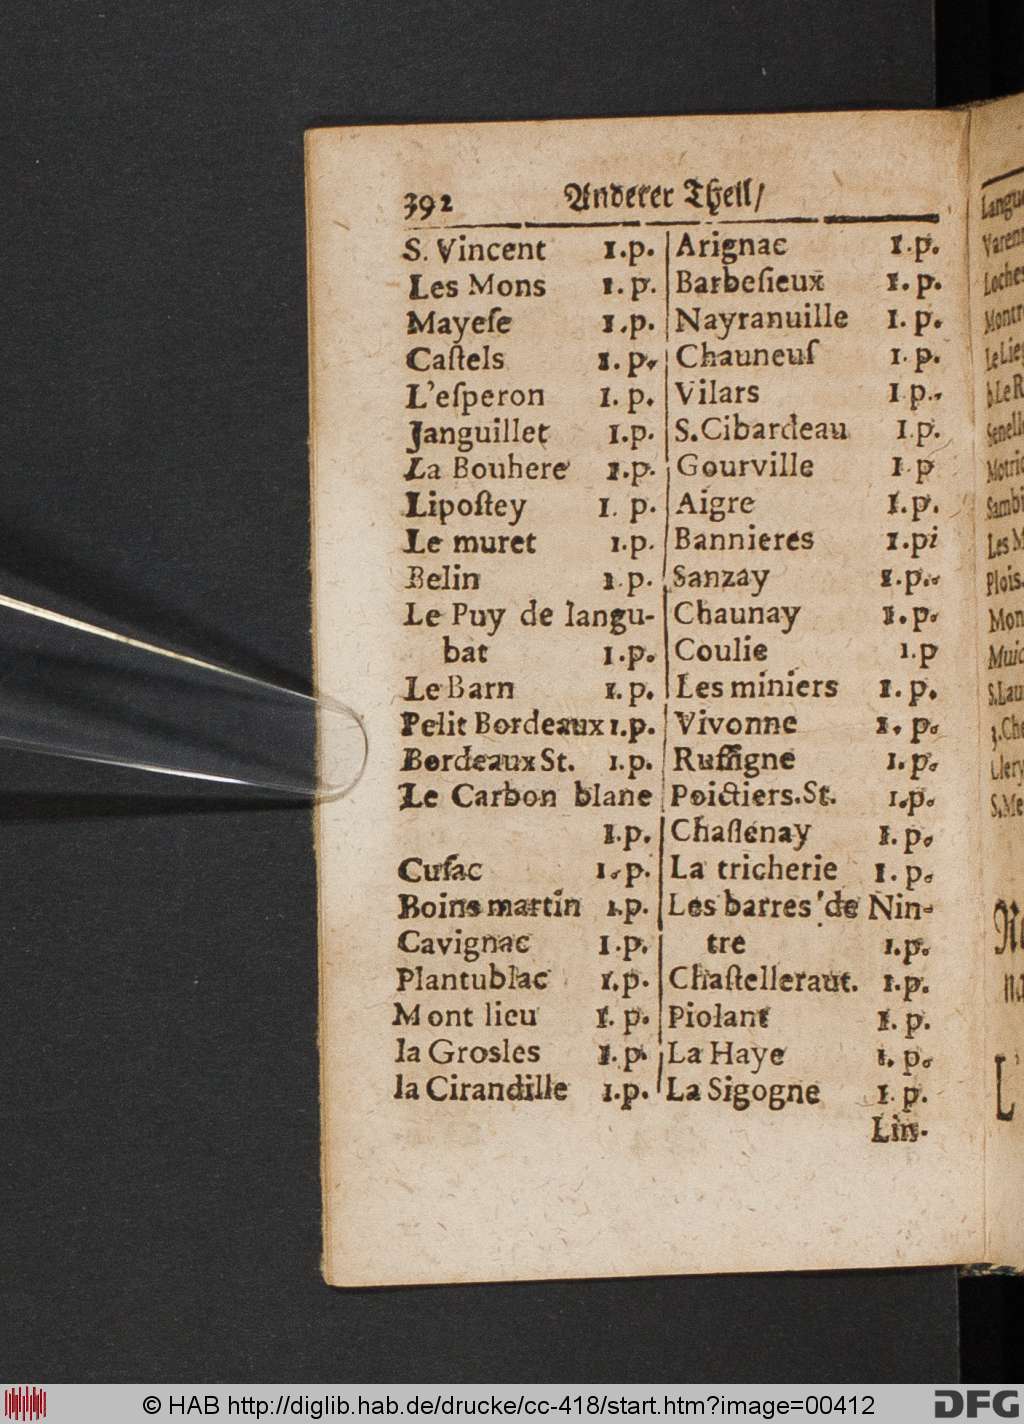 392 Anderer Theil/
S. Vincent 1.p.
Les Mons 1.p.
Mayeſe 1.p.
Caſtels 1.p.
L'eſperon 1.p.
Janguillet 1.p.
La Bouhere 1.p.
Lipoſtey 1.p.
Le muret 1.p.
Belin 1.p.
Le Puy de langu-
bat 1.p.
Le Barn 1.p.
Pelit Bordeaux 1.p.
Bordeaux St. 1.p.
Le Carbon blane
1.p.
Cuſac 1.p.
Boins martin 1.p.
Cavignac 1.p.
Plantublac 1.p.
Mont lieu 1.p.
la Grosles 1.p.
la Cirandille 1.p.
Arignac 1.p.
Barbeſieux 1.p.
Nayranuille 1.p.
Chauneuſ 1.p.
Vilars 1p..
S.Cibardeau 1.p.
Gourville 1 p
Aigre 1.p.
Bannieres 1.pi
Sanzay 1.p..
Chaunay 1.p.
Coulie 1.p
Les miniers 1.p.
Vivonne 1.p.
Ruffigne 1.p.
Poictiers.St. 1.p.
Chaſlenay 1.p.
La tricherie 1.p.
Les barres 'de Nin-
tre 1.p.
Chaſtelleraut. 1.p.
Piolant 1.p.
La Haye 1.p.
La Sigogne 1.p.
Lin-
Varen
Loches
Montr
Le Lie
b Le R
Senell
Motri
Sambi
Les M
Plois.
Mon
Muic
S.Lau
3.Che
Clery
S.Me
L'
© HAB http://diglib.hab.de/drucke/cc-418/start.htm?image=00412
DFG